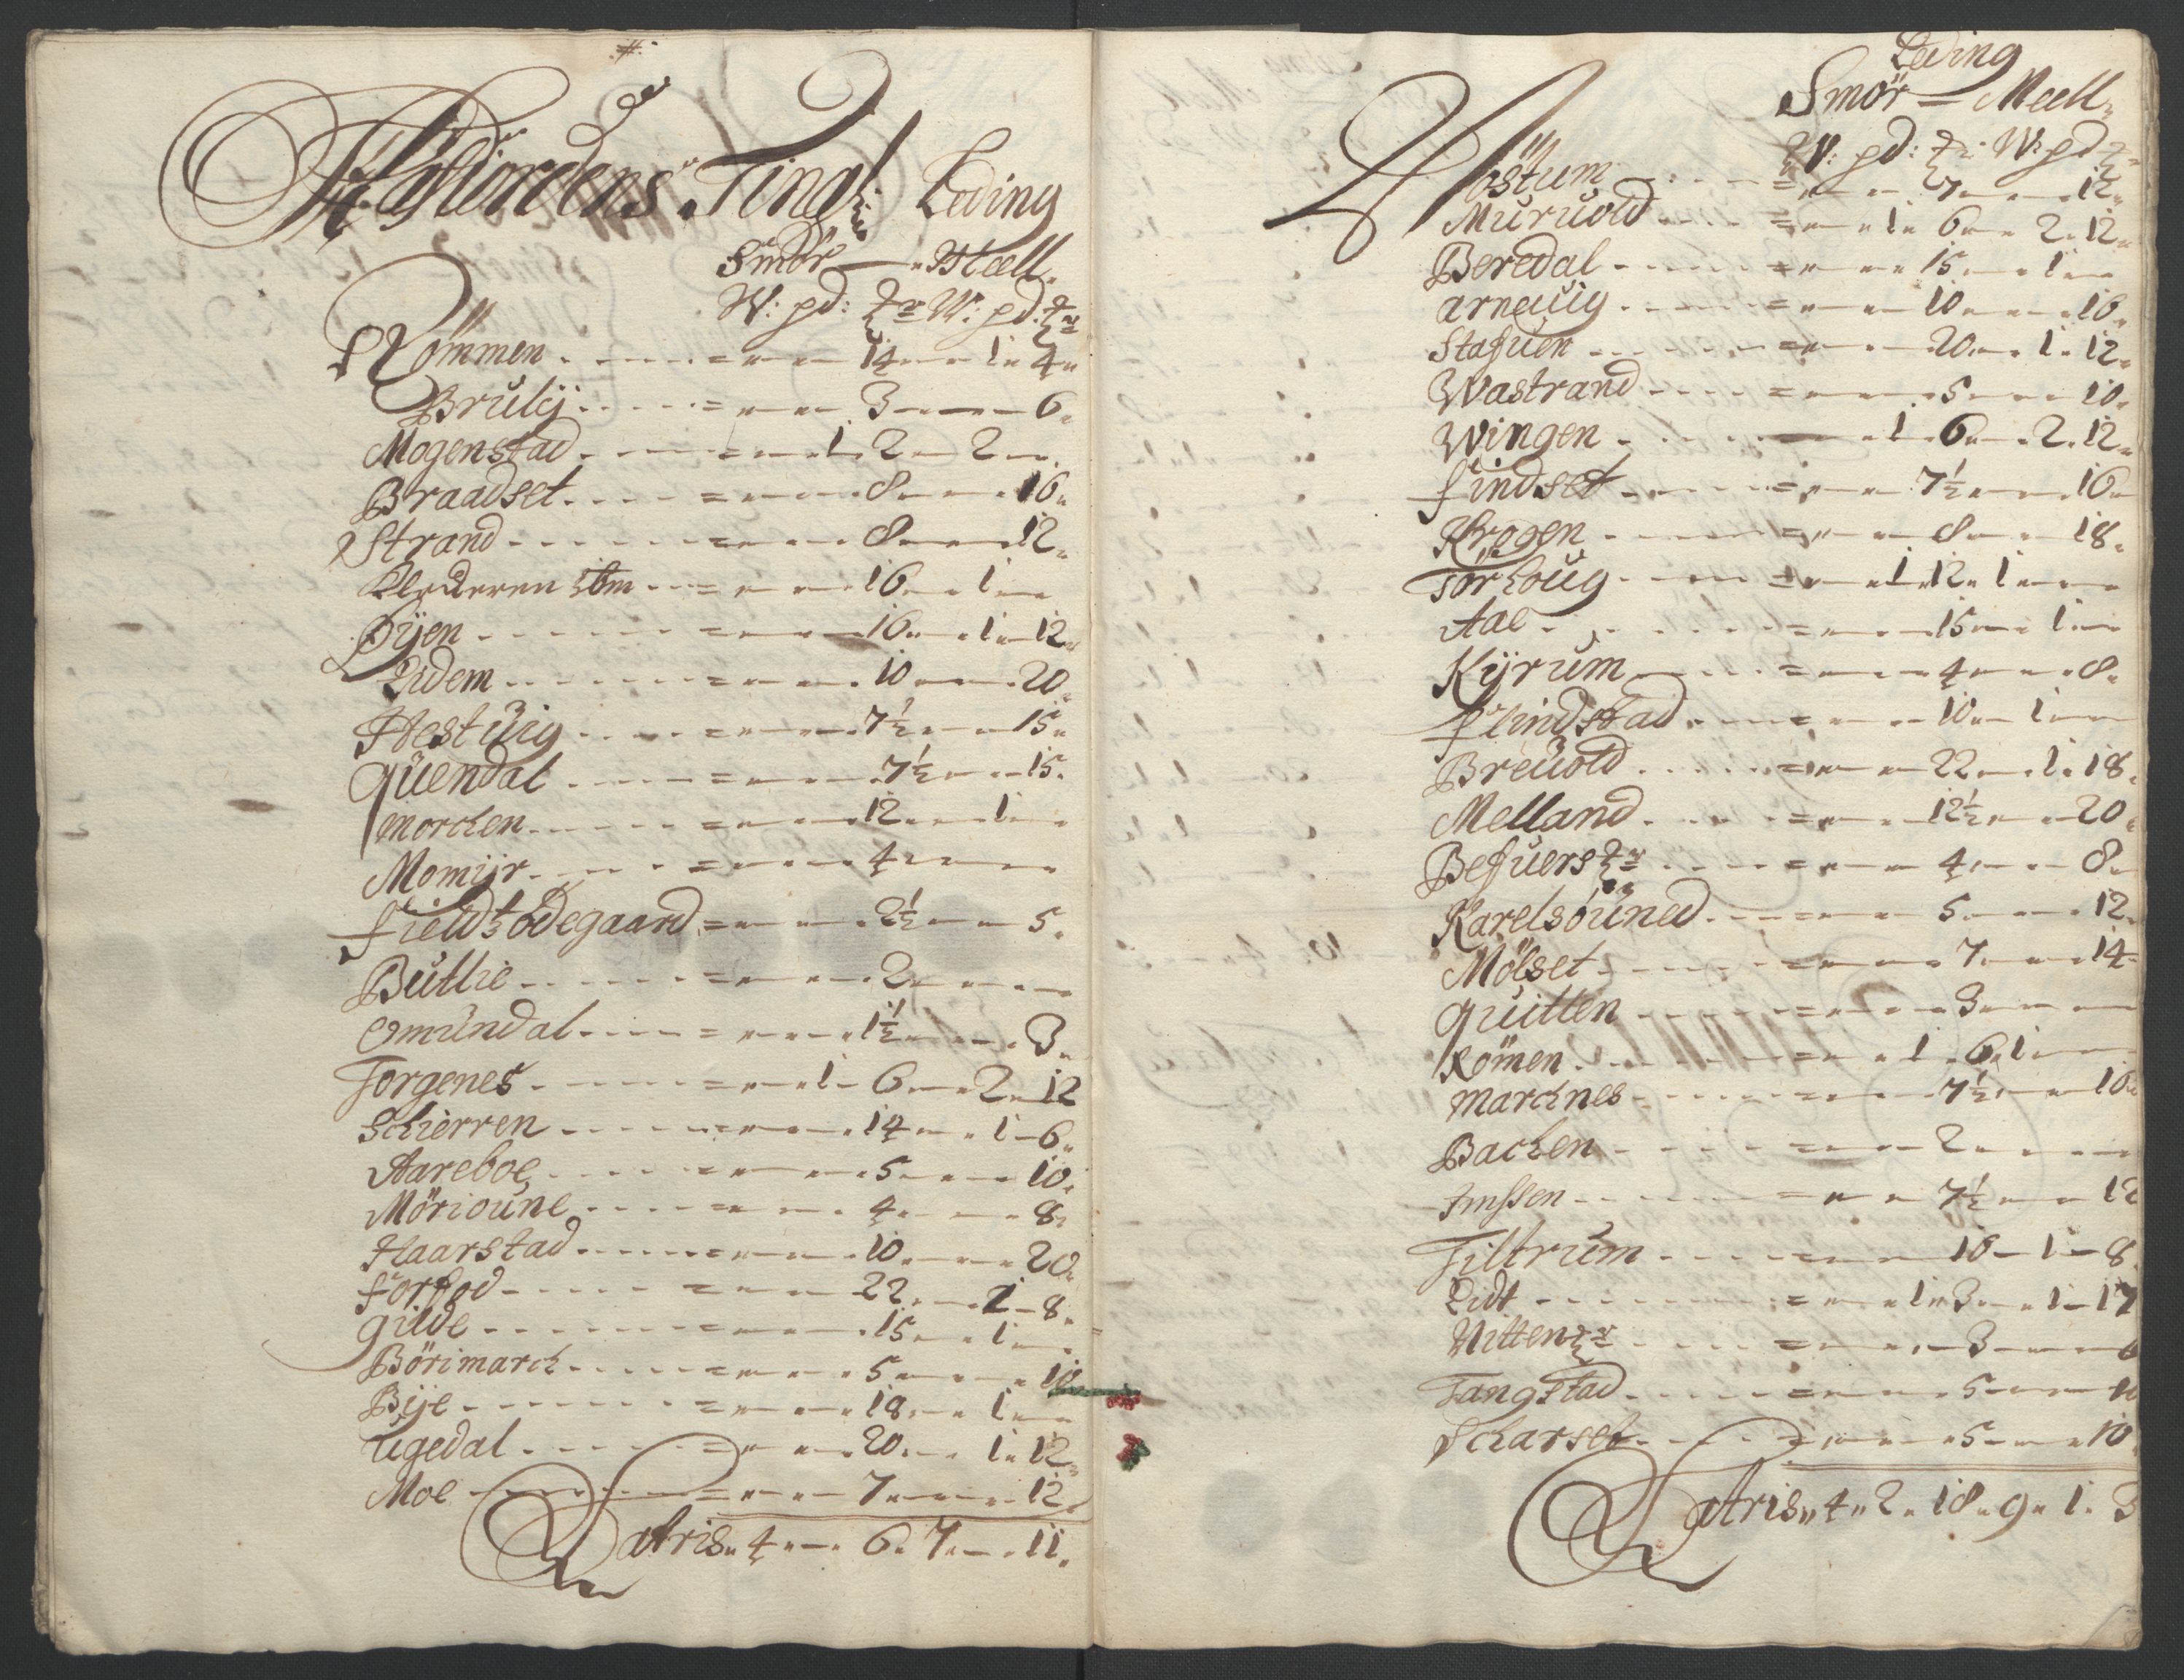 Leding
Smör — Meell
W: pd: W: pd:
Römmen 14 1 4
Brulij 3 6
Mogenstad 1 2 2
Braadset 8 16
Strand 8 12
16 1
Öÿen 16 1 12
Eidem 10 20
Hestuig 7½ 15
Quendal 7½ 15
Morchen 12 1
Momijr 4
Field ödegaard 2½ 5
Butlie 2
Omundal 1½ 3
Torgenes 1 6 2 12
Schierren 14 1 6
Aareboe 5 10
Mörioune 4 8
Haarstad 10 20
Forsod 22 1 8
Gilde 15 1
Börimarch 5 10
Bÿe 18 1
Ugedal 20 1 12
Moe 7 12
Latris 4 6 7 11
Leding
Smör — Meell
W: pd: W: pd
östum 7 12
Muruold 1 6 2 12
Beredal 15 1
Arneuig 10 16
Stafuen 20 1 12
Wastrand 5 10
Wingen 1 6 2 12
Findset 7½ 16
Krogen 8 18
Torhoug 1 12 1
Aae 15 1
Kÿrum 4 8
Flindstad 10 1
Breuold 22 1 18
Melland 12½ 20
Befuers 4 8
Karelsouned 5 12
Mölset 7 14
Quitten 3
Römen 1 6 1
Marchnes 7½ 16
Bachen 2
Imssen 7½ 12
Tiltrum 16 1 8
Eidt 1 3 1 17
Uitten 3 6
Tangstad 5 10
Scharset 5 10
Latris 4 2 18 9 1 3